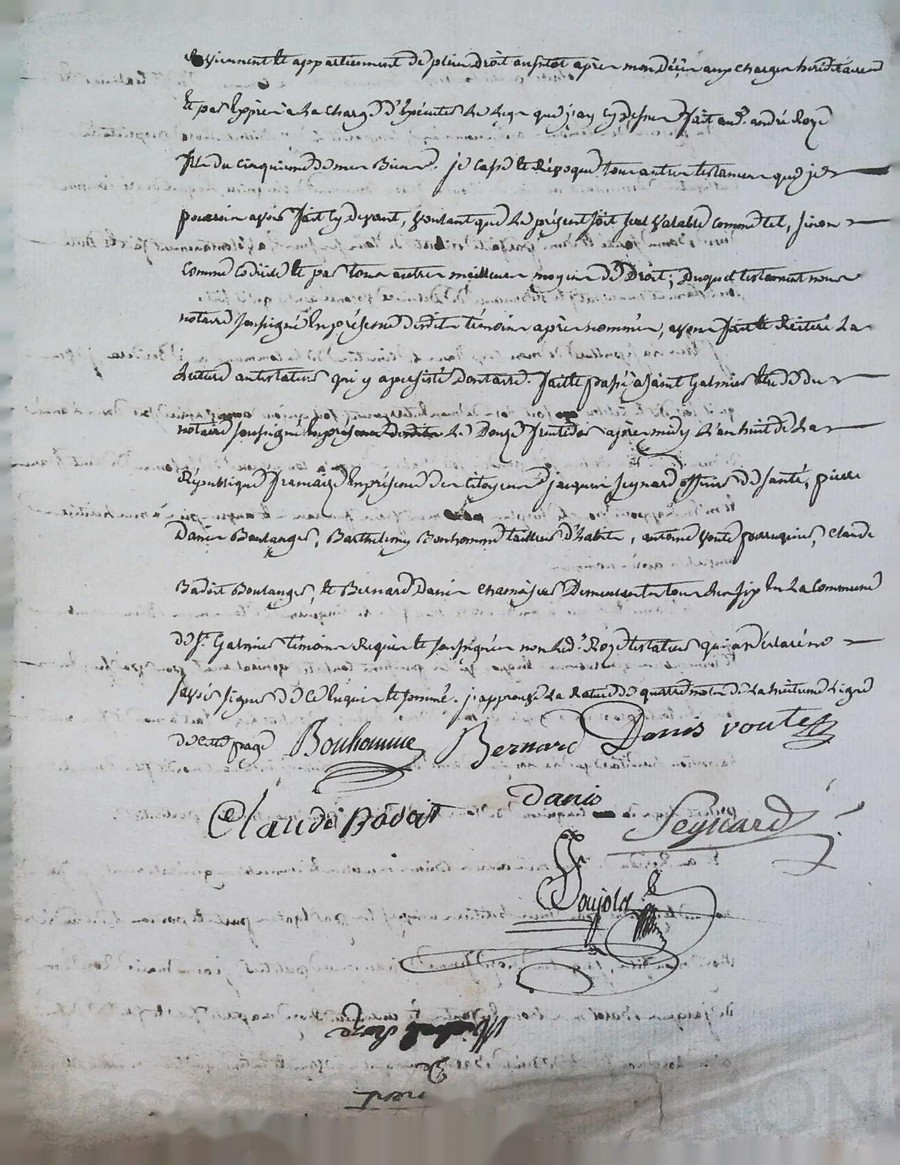 reviennent et appartiennent de plein droit aussitot après mon Décès aux charges héréditaires
Et par Exprès à La charge d'Exécuter Le Legs que j'ay cy dessus fait aud. andré Roze
fils du cinquième de mes Biens. je casse et Révoque tous autres testamens que je
pourrois avoir fait cy devant, voulant que Le présent soit seul valable comme tel, sinon
comme codicile et par tous autres meilleurs moyens de Droit; Duquel testament nous
notaire soussigné En présence desdits témoins après nommés, avons fait et Réitéré La
Lecture au testateur qui y a persisté dont acte. fait et passé à Saint Galmier Etude du
notaire soussigné Le Douze fructidor après midy L'an huit de La
République française En présence des citoyens jacques Seynard officier de santé, pierre
Danis Boulanger, Barthelemy Bonhomme tailleur d'habits, antoine Voute perruquier, Claude
Badoit Boulanger, et Bernard Danis chamoiseur Demeurants tous les six En La Commune
de St. Galmier témoins Requis et soussignés non Led. Roze testateur qui a déclaré ne
savoir signer de ce Enquis et sommé. j'approuve La Rature de quatre mots de La huitième Ligne
de cette page Bonhomme Bernard Danis voute
Claude Badoit danis Seynard
Soujols